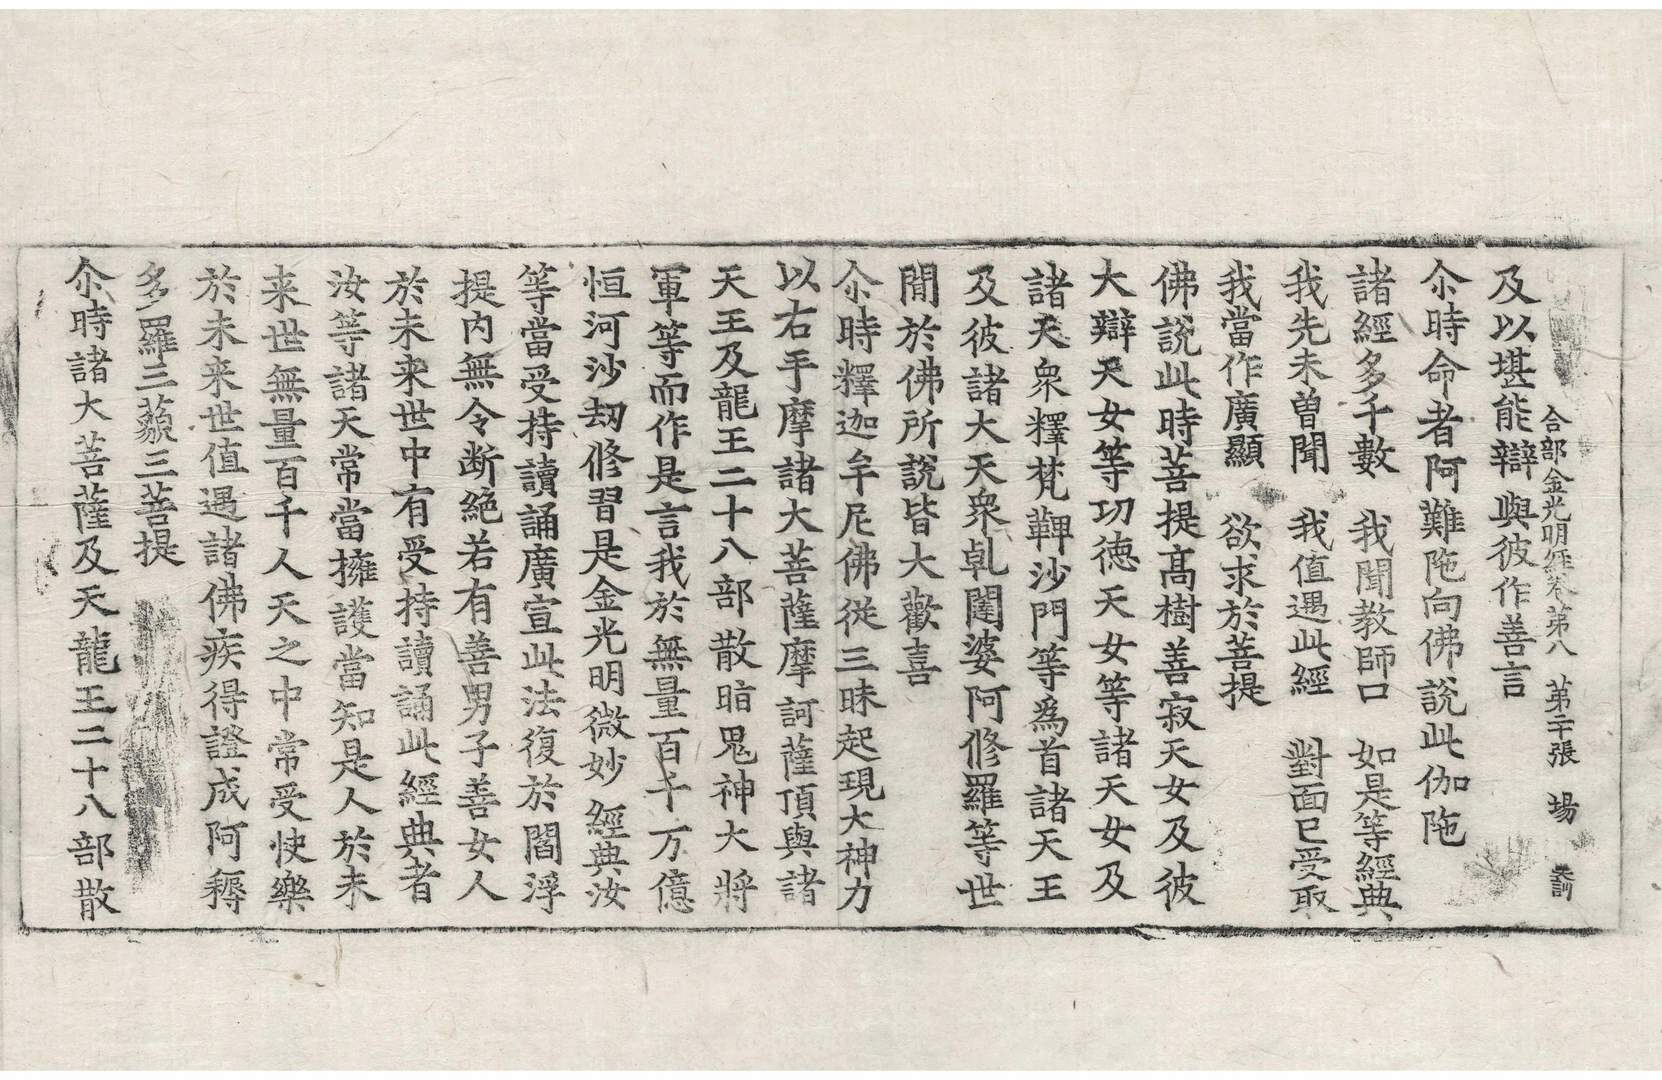 合部金光明經卷第八　第二十張　場
及以堪能辯與彼作善言
尒時命者阿難陁向佛說此伽陁
諸經多千數　我聞教師口　如是等經典
我先未曾聞　我值遇此經　對面已受取
我當作廣顯　欲求於菩提
佛說此時菩提髙樹善寂天女及彼
大辯天女等功德天女等諸天女及
諸天衆釋梵鞞沙門等爲首諸天王
及彼諸大天衆乹闥婆阿修羅等世
間於佛所說皆大歡喜
尒時釋迦牟尼佛從三昧起現大神力
以右手摩諸大菩薩摩訶薩頂與諸
天王及龍王二十八部散脂鬼神大將
軍等而作是言我於無量百千万億
恒河沙劫修習是金光明微妙經典汝
等當受持讀誦廣宣此法復於閻浮
提内無令断絕若有善男子善女人
於未来世中有受持讀誦此經典者
汝等諸天常當擁護當知是人於未
来世無量百千人天之中常受快樂
於未来世值遇諸佛疾得證成阿耨
多羅三藐三菩提
尒時諸大菩薩及天龍王二十八部散